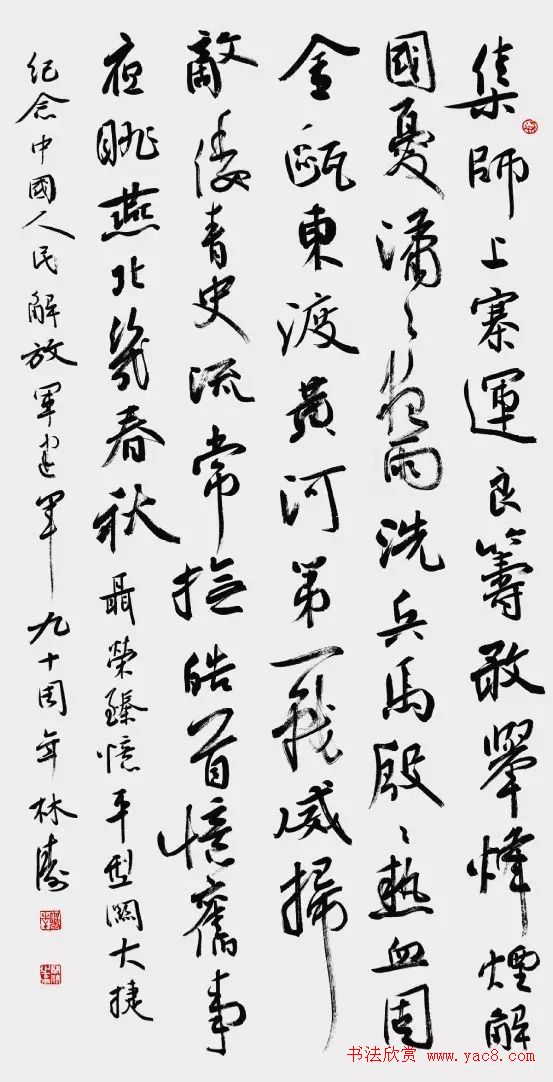 集師上寨運良籌敢舉烽煙解
國憂潚々夜雨洗兵馬殷々熱血固
金甌東渡黃河第一戰威掃
敵倭青史流常撫皓首憶舊事
夜眺燕北幾春秋 聶榮臻憶平型關大捷
紀念中國人民解放軍建軍九十周年 林濤
书法欣赏 www.yac8.com